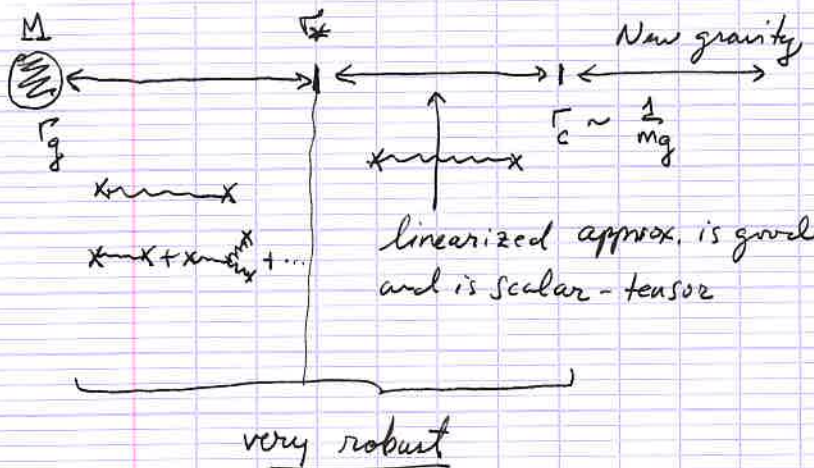 M
r_*
New gravity
r_g
r_c ~ 1/m_g
linearized approx. is good
and is scalar-tensor
+ + ...
very robust